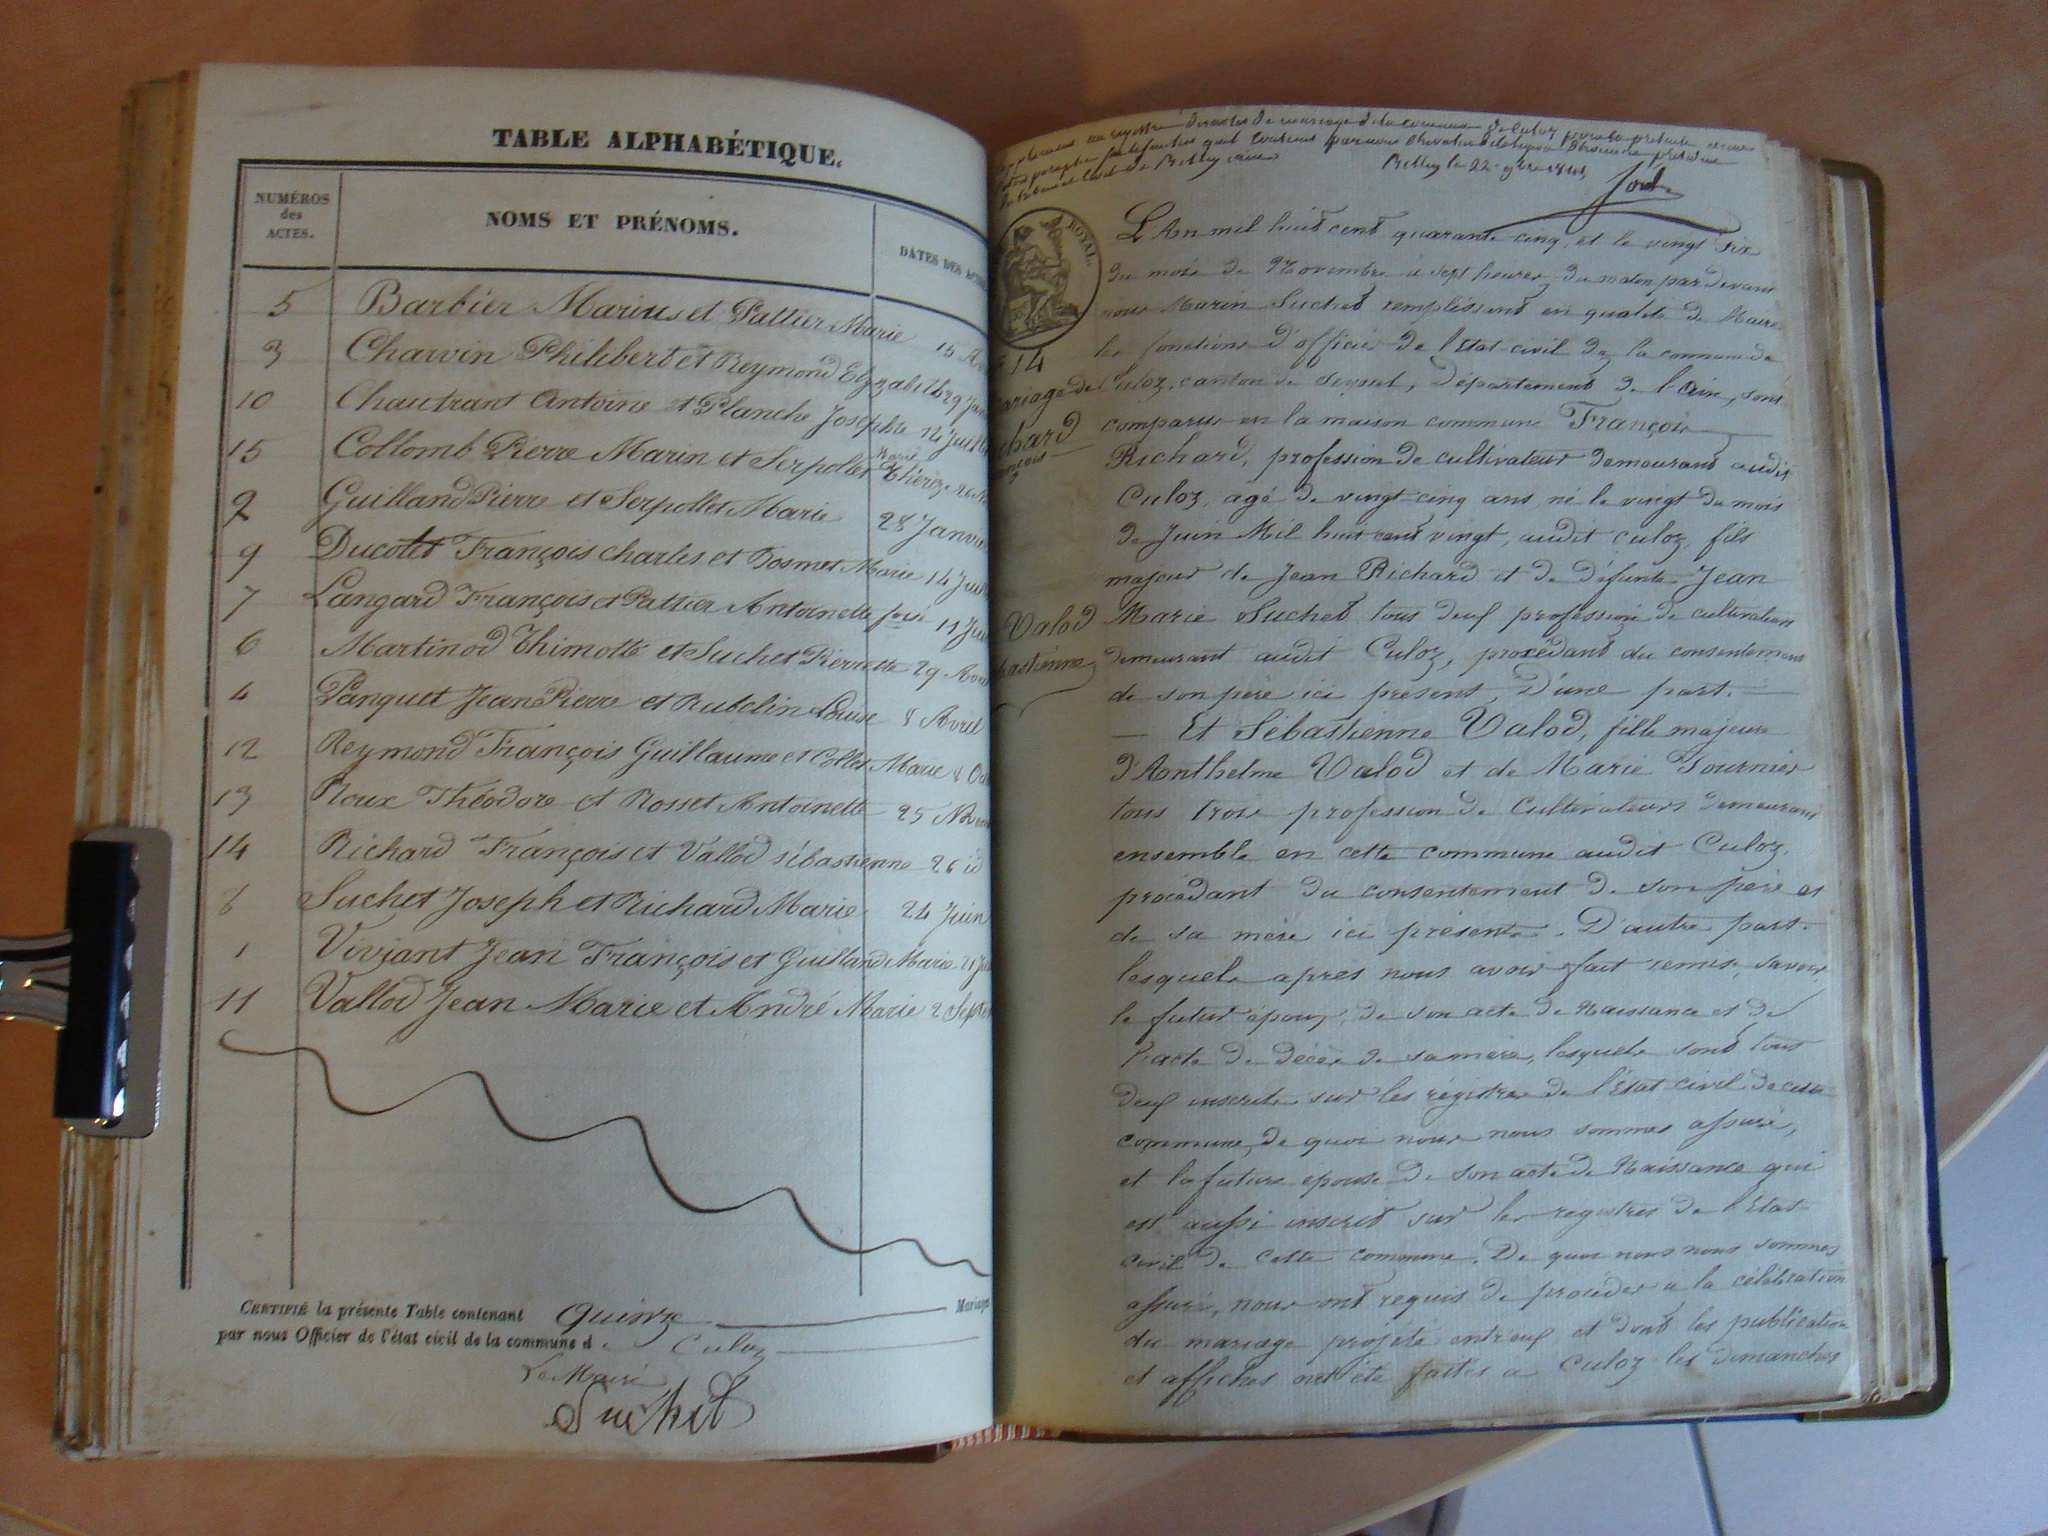 TABLE ALPHABÉTIQUE.
NUMÉROS
des
ACTES.
NOMS ET PRÉNOMS.
DATES DES
5 Barbier Marius et Pattier Marie 15
3 Charvin Philibert et Reymond Elyzabeth 29 Jan
10 Chautrant Antoine et Planche Josephte 14 Juill
15 Collomb Pierre Marin et Serpollet Marie Thérèze 26 N
2 Guilland Pierre et Serpollet Marie 28 Janvier
9 Ducotet François Charles et Bosmet Marie 14 Juil
7 Langard François et Pattier Antoinette José 11 Jui
6 Martinod Thimotté et Suchet Pierrette 29 Avri
4 Panquet Jean Pierre et Rubelin Louise 8 Avril
12 Reymond François Guillaume et Collet Marie 8 Oct
13 Roux Théodore et Rosset Antoinette 25 Nov
14 Richard François et Vallod sébastienne 26 id
8 Suchet Joseph et Richard Marie 24 Juin
1 Viviant Jean François et Guilland Marie 21 Ja
11 Vallod Jean Marie et André Marie 2 Septem
CERTIFIÉ la présente Table contenant Quinze Mariages
par nous Officier de l'état civil de la commune d Culoz
Le Maire
Suchet
registre des actes de mariage de la commune de Culoz pour la présente
par nous Chevalier de la Légion président
Belley le 22 9bre 1844
ROYAL
14
L'An mil huit cent quarante cinq, et le vingt six
du mois de Novembre à sept heures du matin par devant
nous Marin Suchet remplissant en qualité de Maire
les fonctions d'officier de l'Etat civil de la commune de
Mariage de
Culoz, canton de Seyssel, Département de l'Ain, sont
comparus en la maison commune François
Richard
François
Richard, profession de cultivateur demeurant audit
Culoz, agé de vingt cinq ans, né le vingt du mois
de Juin Mil huit cent vingt, audit Culoz, fils
majeur de Jean Richard et de défunte Jean
Valod
Sébastienne
Marie Suchet tous deux profession de cultivateurs
demeurant audit Culoz, procédant du consentement
de son père ici présent, D'une part.
— Et Sébastienne Valod, fille majeure
d'Anthelme Valod et de Marie Fournier
tous trois profession de Cultivateurs demeurant
ensemble en cette commune audit Culoz,
procédant du consentement de son père et
de sa mère ici présents. D'autre part.
lesquels après nous avoir fait remis, savoir
le futur époux, de son acte de Naissance et de
l'acte de décès de sa mère, lesquels sont tous
deux inscrits sur les régistres de l'Etat civil de cette
commune, de quoi nous nous sommes assuré,
et la future epouse de son acte de Naissance qui
est aussi inscrit sur les régistres de l'Etat
civil de cette commune. De quoi nous nous sommes
assuré, nous ont requis de procéder à la célébration
du mariage projeté entreux et dont les publication
et affiches ont été faites a Culoz les dimanches